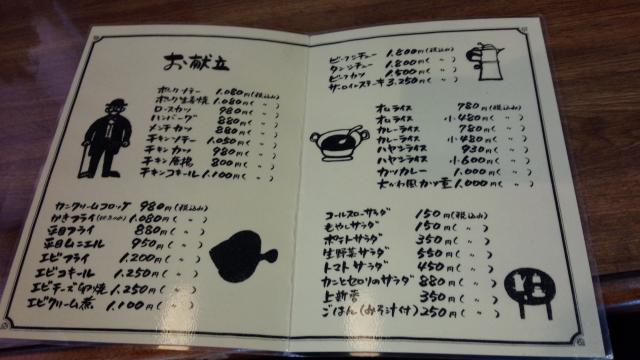 お献立
ポークソテー 1.080円(税込み)
ポーク生姜焼 1.080円( 〃 )
ロースカツ 980円( 〃 )
ハンバーグ 880円( 〃 )
メンチカツ 880円( 〃 )
チキンソテー 1.080円( 〃 )
チキンカツ 980円( 〃 )
チキン唐揚 800円( 〃 )
チキンコキール 1.100円( 〃 )
カニクリームコロッケ 980円(税込み)
かきフライ 1.080円( 〃 )
平目フライ 880円( 〃 )
平目ムニエル 950円( 〃 )
エビフライ 1.200円( 〃 )
エビコキール 1.250円( 〃 )
エビチーズ卵焼 1.250円( 〃 )
エビクリーム煮 1.100円( 〃 )
ビーフシチュー 1.800円(税込み)
タンシチュー 1.800円( 〃 )
ビーフカツ 1.500円( 〃 )
サーロインステーキ 3.250円( 〃 )
オムライス 780円(税込み)
オムライス 小480円( 〃 )
カレーライス 780円( 〃 )
カレーライス 小480円( 〃 )
ハヤシライス 930円( 〃 )
ハヤシライス 小600円( 〃 )
カツカレー 1.000円( 〃 )
大かわ風カツ重 1.000円( 〃 )
コールスローサラダ 150円(税込み)
もやしサラダ 150円( 〃 )
ポテトサラダ 350円( 〃 )
生野菜サラダ 550円( 〃 )
トマトサラダ 450円( 〃 )
カニとセロリのサラダ 880円( 〃 )
上新香 350円( 〃 )
ごはん(みそ汁付) 250円( 〃 )